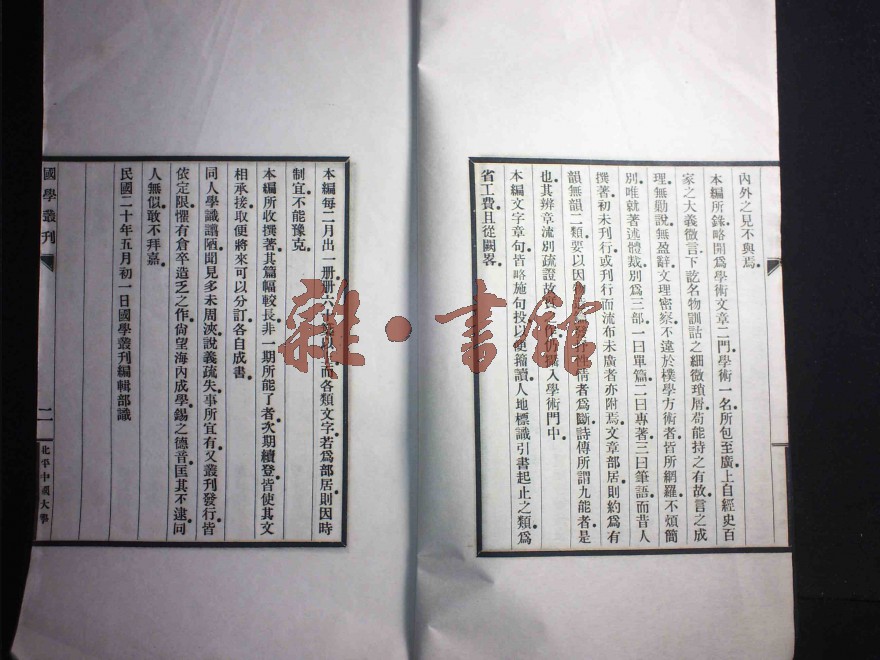 內外之見不與焉
本編所錄略開爲學術文章二門學術一名所包至廣上自經史百
家之大義微言下訖名物訓詁之細微瑣屑苟能持之有故言之成
理無勦說無盈辭文理密察不違於樸學方術者皆所網羅不煩簡
別唯就著述體裁別爲三部一曰單篇二曰專著三曰筆語而昔人
撰著初未刊行或刊行而流布未廣者亦附焉文章部居則約爲有
韻無韻二類要以因 性情者爲斷詩傳所謂九能者是
也其辨章流別疏證故 入學術門中
本編文字章句皆略施句投以便籀讀人地標識引書起止之類爲
省工費且從闕畧
本編每二月出一册册六十 以 而各類文字若爲部居則因時
制宜不能豫克
本編所收撰著其篇幅較長非一期所能了者次期續登皆使其文
相承接取便將來可以分訂各自成書
同人學識譾陋聞見多未周浹說義疏失事所宜有又叢刊發行皆
依定限懼有倉卒造乏之作尙望海內成學錫之德音匡其不逮同
人無似敢不拜嘉
民國二十年五月初一日國學叢刊編輯部識
國學叢刊
二
北平中國大學
雜·書館